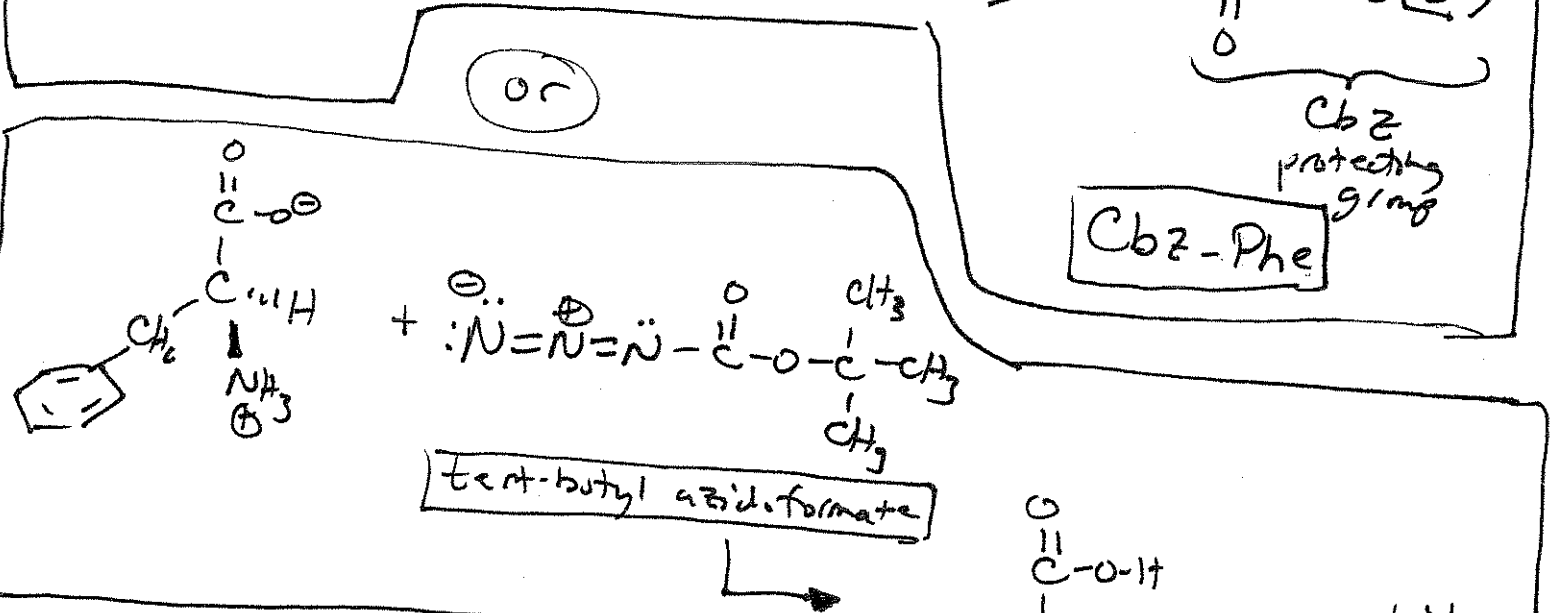 or
O
Cbz
protecting
group
Cbz-Phe
O
||
C-O⊖
|
C''''H
CH2
NH3
⊕
+
⊖
:N̈=N⊕=N̈-C-O-C-CH3
O
||
CH3
|
|
CH3
tert-butyl azidoformate
O
||
C-O-H
|